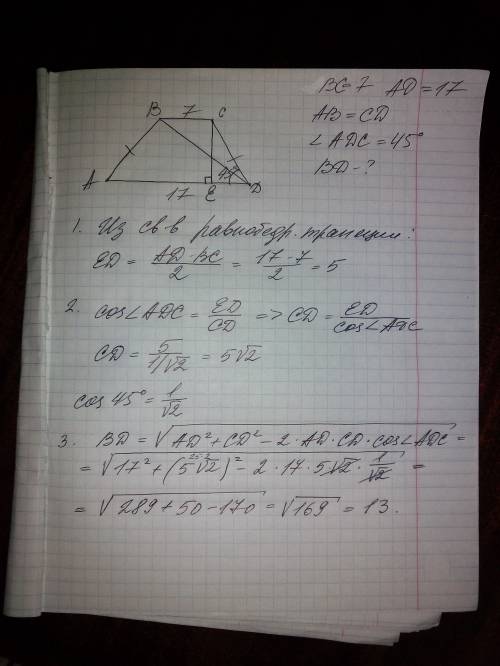 BC=7 AD=17
AB=CD
∠ADC=45°
BD-?
B 7 C
45°
A 17 E D
1. Из св-в равнобедр. трапеции:
ED = (AD-BC)/2 = (17-7)/2 = 5
2. cos∠ADC = ED/CD => CD = ED/cos∠ADC
CD = 5/(1/√2) = 5√2
cos 45° = 1/√2
3. BD = √(AD²+CD²-2·AD·CD·cos∠ADC) =
= √(17²+(5√2)²-2·17·5√2·1/√2) =
= √(289+50-170) = √169 = 13.